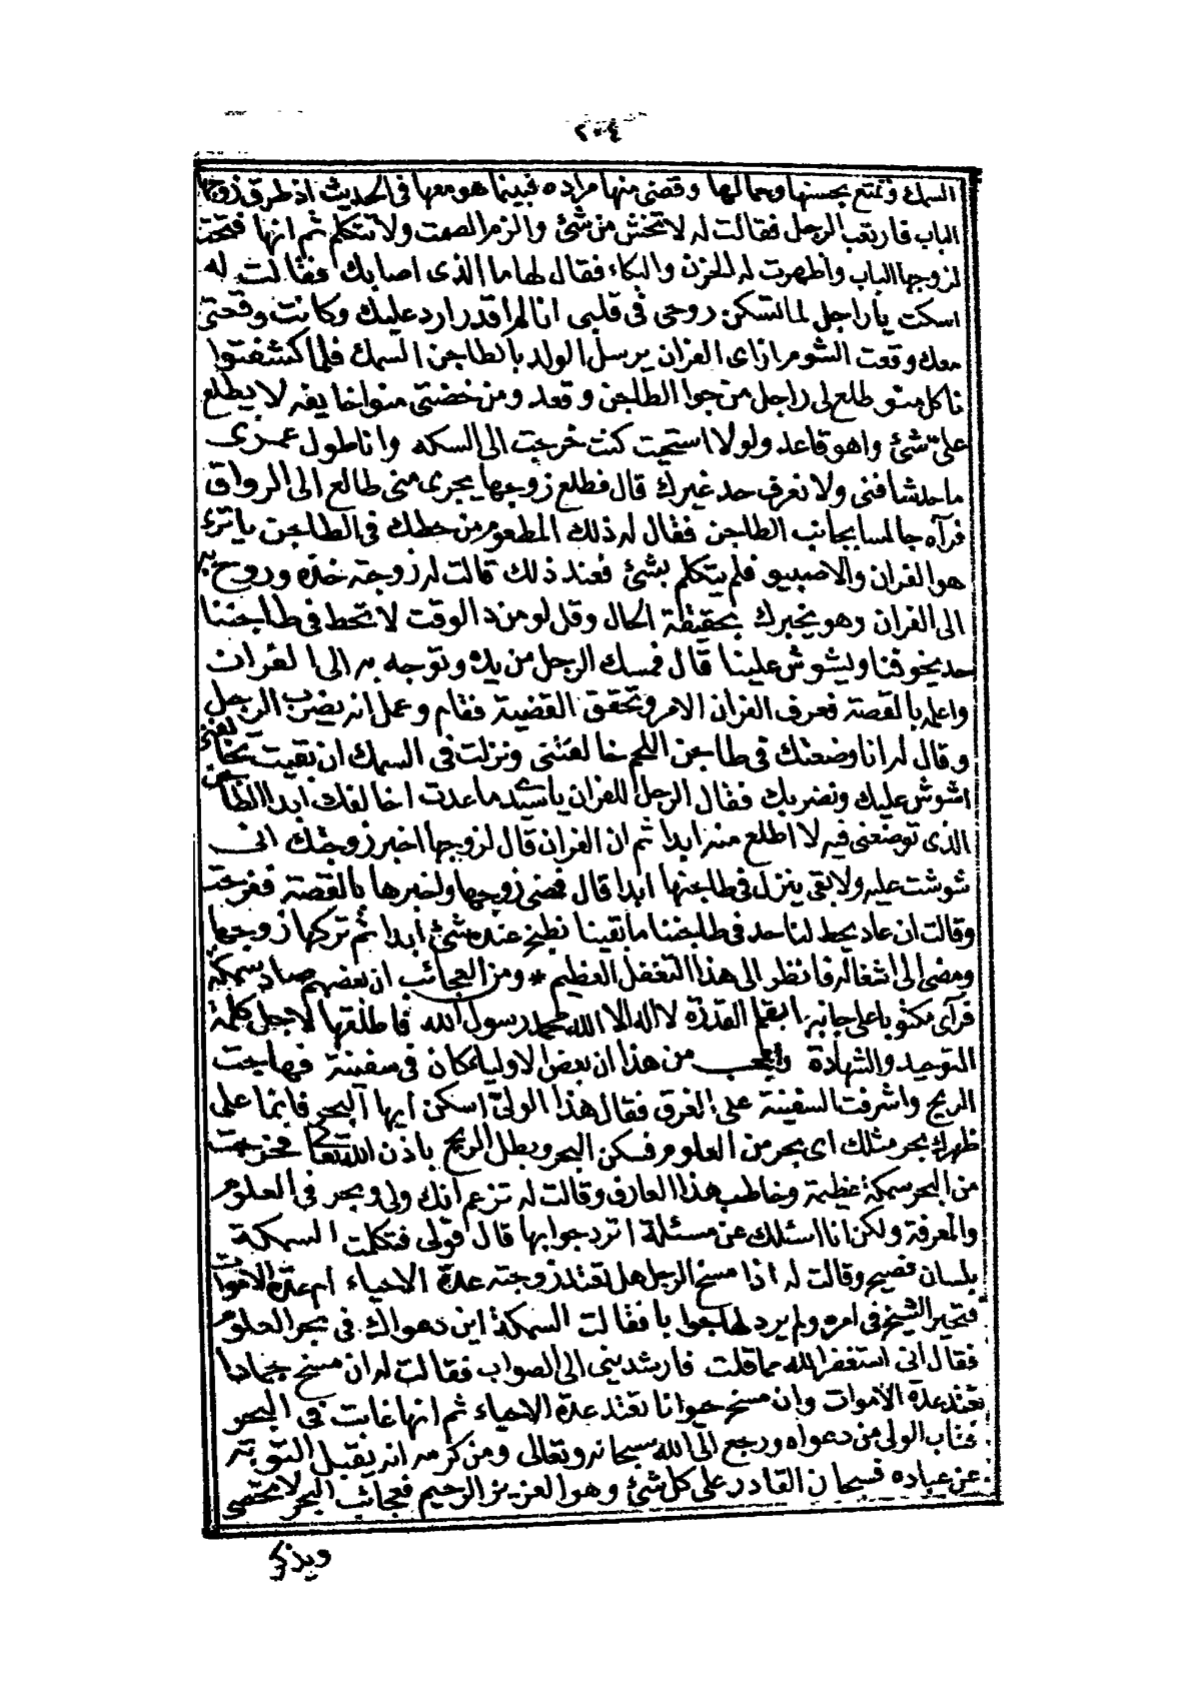 ٢٠٤
السمك وتمتع بحسنها وجمالها وقضى منها مراده فبينما هو معها فى الحديث اذ طرق زوجها
الباب فارتعب الرجل فقالت له لا تخش من شئ والزم الصمت ولا تتكلم ثم انها فتحت
لزوجها الباب واظهرت له الحزن والبكاء فقال لها ما الذى اصابك فقالت له
اسكت ياراجل لما تسكن روحى فى قلبى انا لم اقدر ارد عليك وكانت وقعتى
معك وقعت الشوم ازاى الفران يرسل الولد بالطاجن السمك فلما كشفتوا
ناكل منو طلع لى راجل من جوا الطاجن وقعد ومن خضتى منو اخايفه لا يطلع
علىّ شئ واهو قاعد ولولا استحيت كنت خرجت الى السكه وانا طول عمرى
ما حد شافنى ولا نعرف حد غيرك قال فطلع زوجها يجرى منى طالع الى الرواق
فرآه جالسا بجانب الطاجن فقال له ذلك المطعوم من حطك فى الطاجن ياترى
هو الفران والا صبيو فلم يتكلم بشئ فعند ذلك قالت له زوجته خذه وروح به
الى الفران وهو يخبرك بحقيقة الحال وقل لو من د الوقت لا تحط فى طاجننا
حد يخوفنا ويشوش علينا قال فمسك الرجل من يده وتوجه به الى الفران
واعلمه بالقصة فعرف الفران الامر وتحقق القضية فقام وعمل انه يضرب الرجل
وقال له انا وضعتك فى طاجن اللحم خالفتنى ونزلت فى السمك ان بقيت تخالفنى
اشوش عليك ونضربك فقال الرجل للفران ياسيدى ما عدت اخالفك ابدا الطاجن
الذى توضعنى فيه لا اطلع منه ابدا ثم ان الفران قال لزوجها اخبر زوجتك انى
شوشت عليه ولا بقى ينزل فى طاجنها ابدا قال فمضى زوجها واخبرها بالقصة ففرحت
وقالت ان عاد يحط لنا حد فى طاجننا ما بقينا نطبخ عنده شئ ابدا ثم تركها زوجها
ومضى الى اشغاله فانظر الى هذا التغفل العظيم * ومن العجائب ان بعضهم صاد سمكة
فرآى مكتوبا على جانبها بقلم القدرة لا اله الا الله محمد رسول الله فاطلقها لاجل كلمة
التوحيد والشهادة واعجب من هذا ان بعض الاولياء كان فى سفينة فهاجت
الريح واشرفت السفينة على الغرق فقال هذا الولىّ اسكن ايها البحر فانما على
ظهرك بحر مثلك اى بحر من العلوم فسكن البحر وبطل الريح باذن الله تعالى فخرجت
من البحر سمكة عظيمة وخاطب هذا العارف وقالت له تزعم انك ولى وبحر فى العلوم
والمعرفة ولكن انا اسئلك عن مسئلة اترد جوابها قال قولى فتكلمت السمكة
بلسان فصيح وقالت له اذا مسخ الرجل هل تعتد زوجته عدة الاحياء ام عدة الاموات
فتحير الشيخ فى امره ولم يرد لها جوابا فقالت السمكة اين دعواك فى بحر العلوم
فقال انى استغفر الله مما قلت فارشدينى الى الصواب فقالت له ان مسخ جمادا
تعتد عدة الاموات وان مسخ حيوانا تعتد عدة الاحياء ثم انها غابت فى البحر
فتاب الولى من دعواه ورجع الى الله سبحانه وتعالى ومن كرمه انه يقبل التوبة
عن عباده فسبحان القادر على كل شئ وهو العزيز الرحيم فعجائب البحر لا تحصى
ويذكر